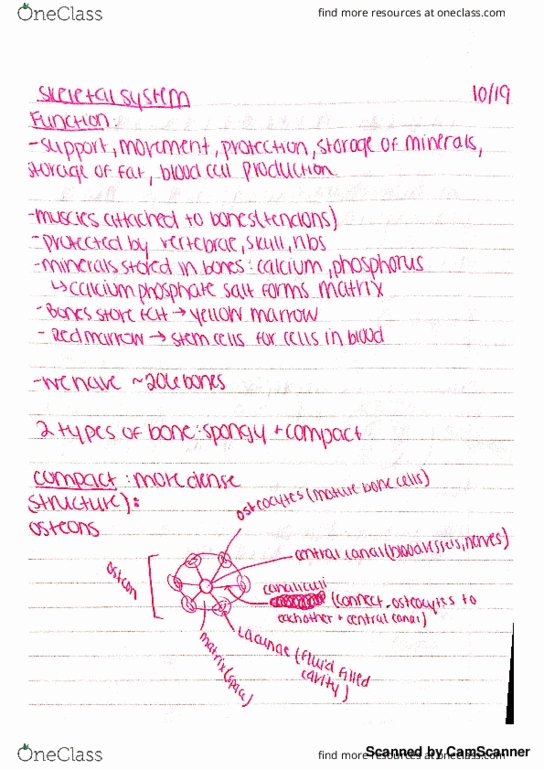 OneClass
find more resources at oneclass.com
Skeletal system 10/19
Function:
-support, movement, protection, storage of minerals,
storage of fat, blood cell production
-muscles attached to bones(tendons)
-protected by vertebrae, skull, ribs
-minerals stored in bones: calcium, phosphorus
↳ calcium phosphate salt forms matrix
-Bones store fat → yellow marrow
-Red marrow → stem cells for cells in blood
-we have ~206 bones
2 types of bone: spongy + compact
compact: more dense
(structure):
osteons
osteocytes (mature bone cells)
central canal (blood vessels, nerves)
osteon
canaliculi
(connect osteocytes to
eachother + central canal)
Lacunae (fluid filled
cavity)
matrix (space)
OneClass
find more resources at oneclass.com
Scanned by CamScanner